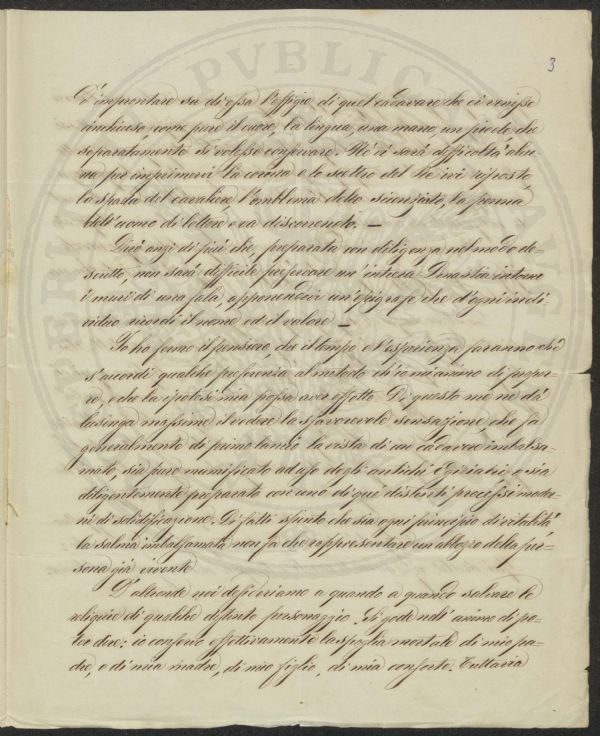 3
D'improntare su di essa l'effigie di quel cadavere che ci venisse
rinchiuso, come pure il cuore, la lingua, una mano, un piede che
separatamente si volesse conservare. Nè vi sarà difficoltà alcu-
na per imprimervi la corona e lo scettro del Re ivi riposto,
la spada del cavaliere l'emblema dello scienziato, la penna
dell'uomo di lettere e va discorrendo. —
Dirò anzi di più che, preparata con diligenza nel modo de-
scritto, non sarà difficile
un'intera Dinastia intorno
i muri di una sala, apponendovi un'epigrafe che d'ogni indi-
viduo ricordi il nome ed il valore —
Io ho fermo il pensiero, che il tempo e l'esperienza faranno sì
s'accordi qualche preferenza al metodo di
, e che la ipotesi mia possa aver effetto. Di questo me ne dà
lusinga massime il vedere la sfavorevole sensazione, che fa
generalmente di primo lancio la vista di un cadavere imbalsa-
mato, sia pure mumificato ad uso degli antichi Egiziani, o sia
diligentemente preparato con uno di que' distinti processi moder-
ni di solidificazione. Di fatti spento che sia ogni principio di vitalità
la salma imbalsamata non fa che rappresentare un abbozzo della per-
sona già vivente
D'altronde noi desideriamo a quando a quando salvare le
reliquie di qualche distinto personaggio. Si gode nell'animo di po-
ter dire: io conservo effettivamente la spoglia mortale di mio pa-
dre, o di mia madre, di mio figlio, di mia consorte. Tuttavia
PVBLICA